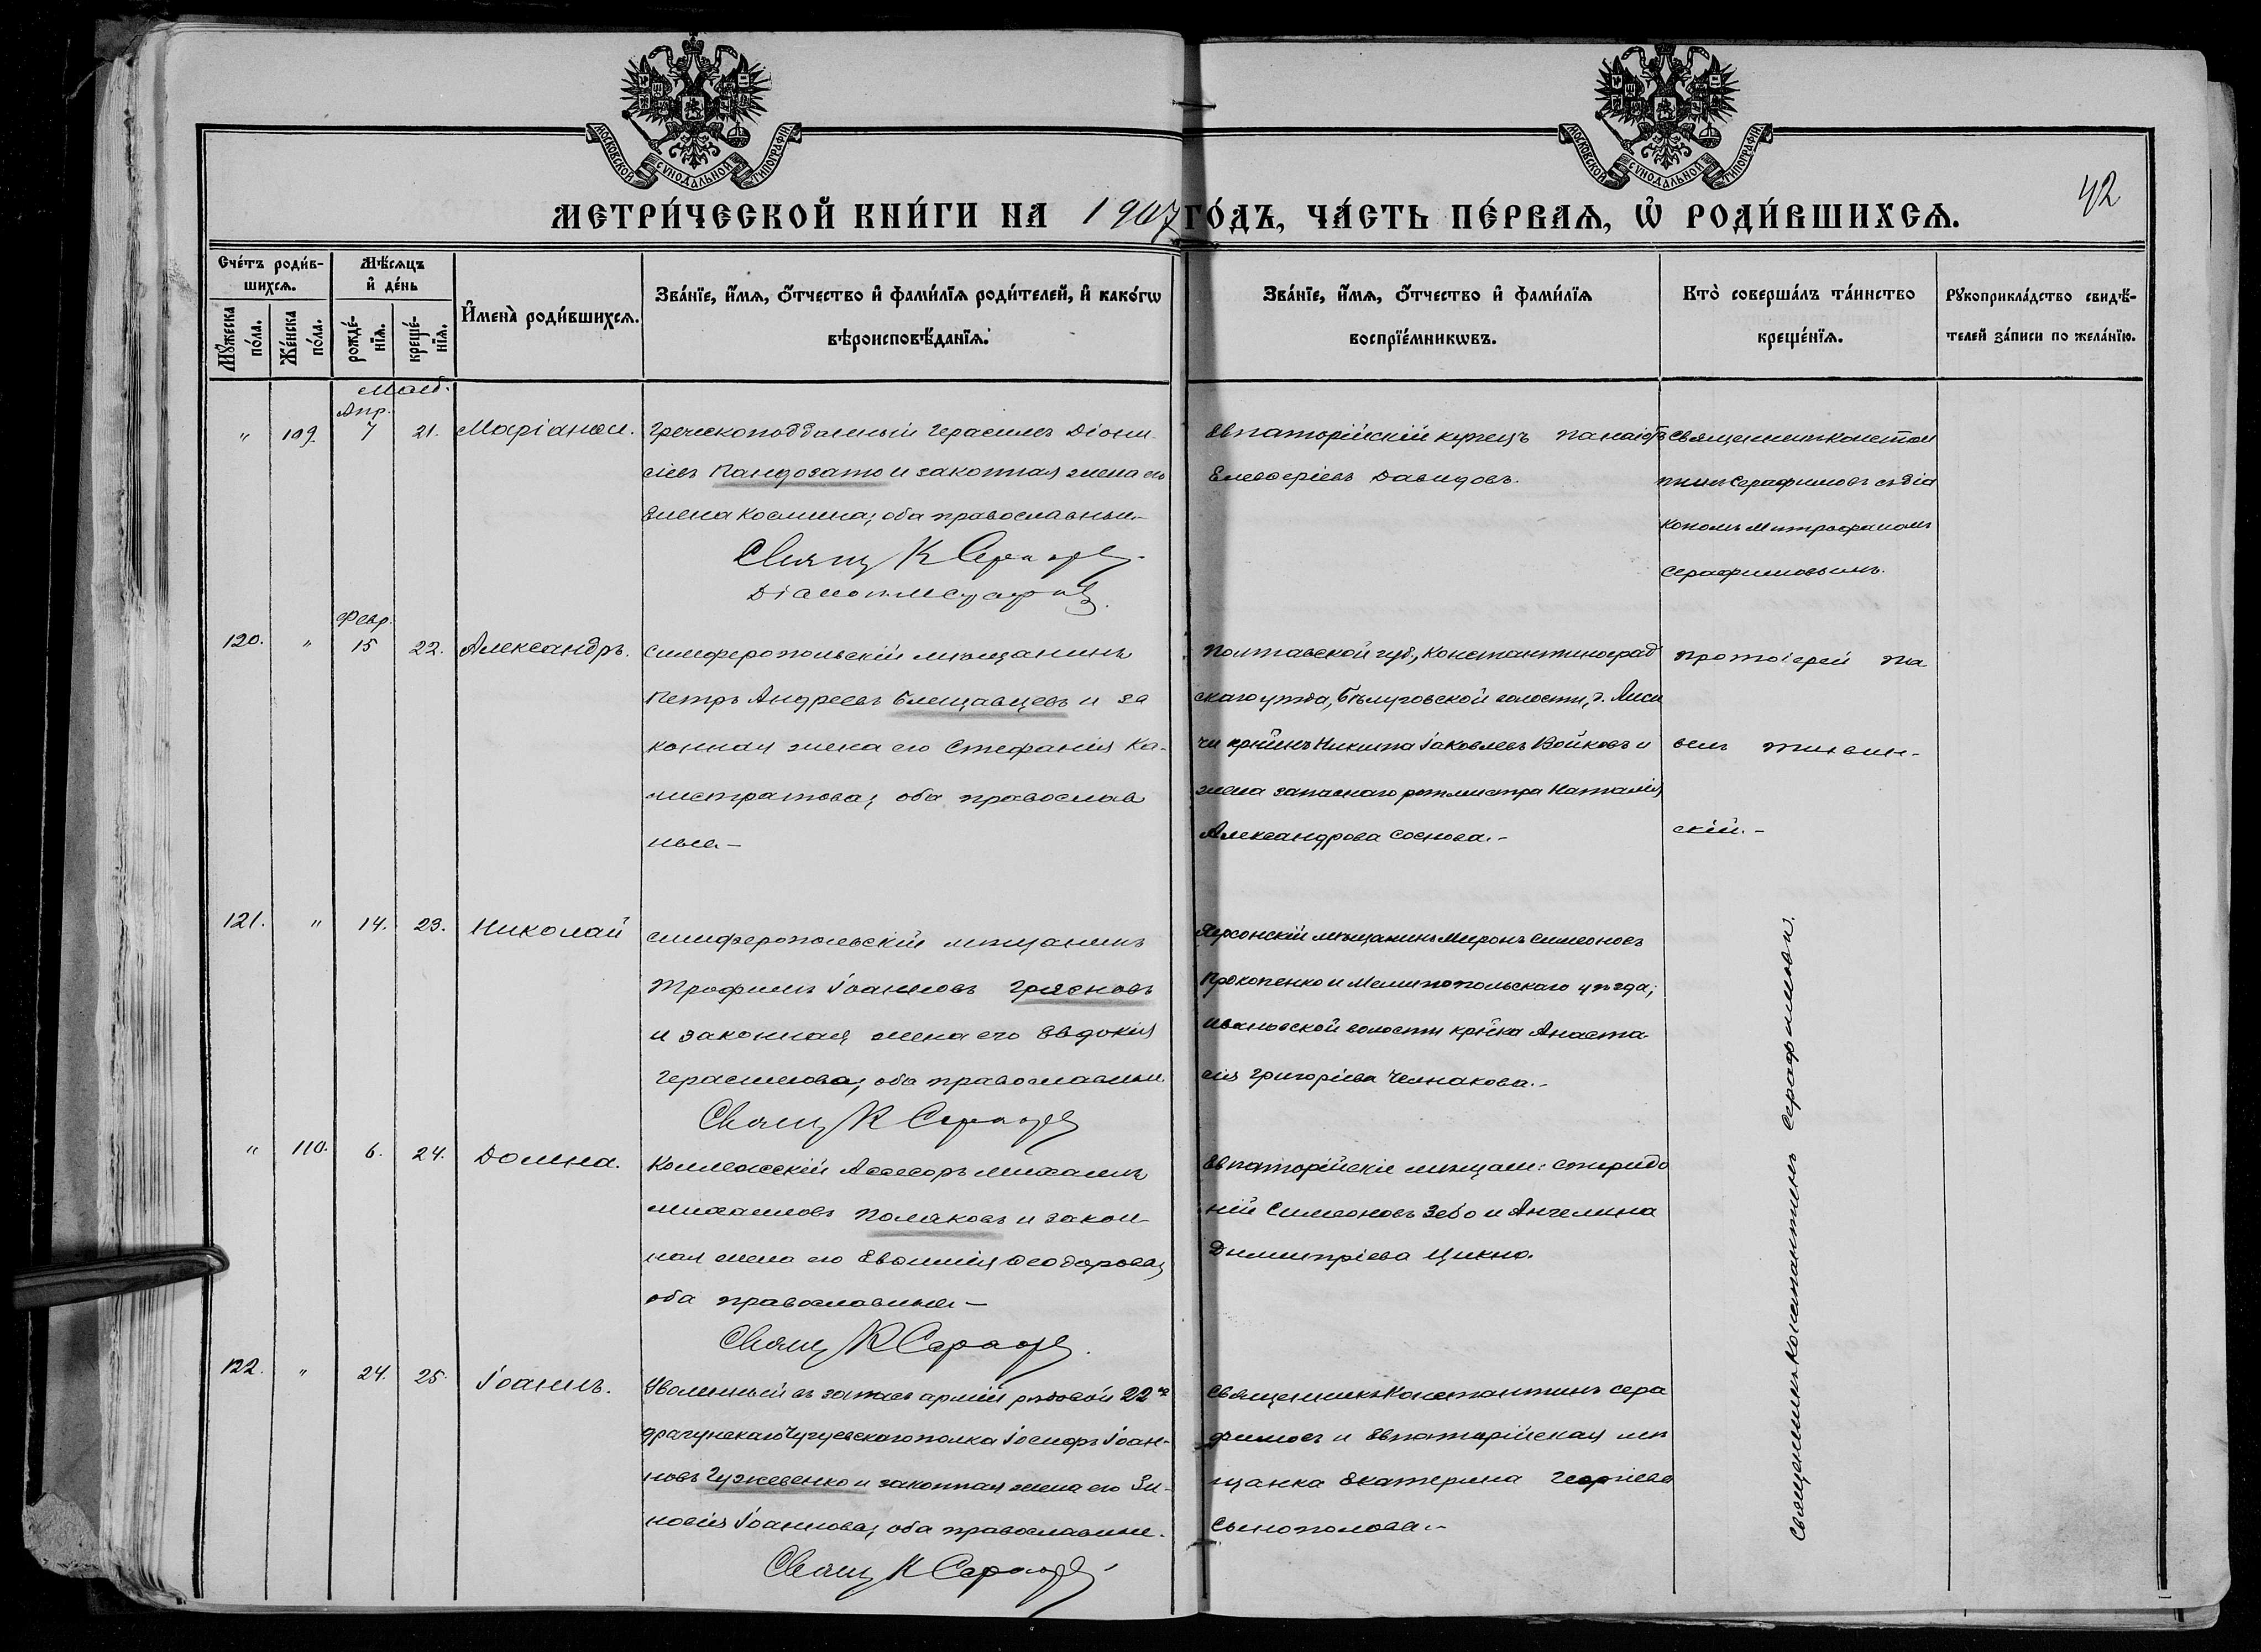 МОСКОВСКОЙ СѴНОДАЛЬНОЙ ТИПОГРАФІИ
МОСКОВСКОЙ СѴНОДАЛЬНОЙ ТИПОГРАФІИ
42
МЕТРИ́ЧЕСКОЙ КНИ́ГИ НА 1907 ГО́ДЪ, ЧА́СТЬ ПЕ́РВАЯ, Ѡ҆ РОДИ́ВШИХСѦ.
Сче́тъ роди́в-
шихсѧ.
Мꙋ́жеска по́ла.
Же́нска по́ла.
Мѣ́сѧцъ
и҆ де́нь
рожде́-нїѧ.
креще́-нїѧ.
И҆мена̀ роди́вшихсѧ.
Зва́нїе, и҆́мѧ, ѻ҆́тчество и҆ фами́лїѧ роди́телей, и҆ како́гѡ
вѣроисповѣ́данїѧ.
Зва́нїе, и҆́мѧ, ѻ҆́тчество и҆ фами́лїѧ
воспрїе́мникѡвъ.
Кто̀ соверша́лъ та́инство
креще́нїѧ.
Рꙋкоприкла́дство свидѣ́-
телей за́писи по жела́нїю.
Май.
Апр.
" 109. 7 21. Маріанна.
Греческоподданный Герасимъ Діони
сіевъ Пандозато и законная жена его
Елена Космина; оба православные.-
Свящ К Сераф
Діаконъ М Сераф
Евпаторійскій купецъ Панаіотъ
Елевѳеріевъ Давидовъ.
Священникъ Констан
тинъ Серафимовъ съ діа
кономъ Митрофаномъ
Серафимовымъ.
Февр.
120. " 15 22. Александръ.
Симферопольскій мѣщанинъ
Петръ Андреевъ Блещавцевъ и за
конная жена его Стефанія Ка-
листратова; оба православ
ные.-
Полтавской губ., Константиноград
скаго уѣзда, Бѣлуховской волости, д. Лиси
чи крнинъ Никита Іаковлевъ Войковъ и
жена запаснаго ротмистра Наталія
Александрова Соснова.-
Протоіерей Па
велъ Тихвин-
скій.-
121. " 14. 23. Николай
Симферопольскій мѣщанинъ
Трофимъ Іоанновъ Грясновъ
и законная жена его Евдокія
Герасимова; оба православные
Свящ К Сераф
Херсонскій мѣщанинъ Миронъ Симеоновъ
Прокопенко и Мелитопольскаго уѣзда,
Ивановской волости крнка Анаста-
сія Григоріева Челнакова.-
" 110. 6. 24. Домна.
Коллежскій Ассесоръ Михаилъ
Михаиловъ Поляковъ и закон-
ная жена его Евѳимія Ѳеодорова;
оба православные.-
Свящ К Сераф
Евпаторійскіе мѣщане: Спиридо
ній Симеоновъ Зебо и Ангелина
Димитріева Цикно.
122. " 24. 25. Іоаннъ.
Уволенный въ запасъ арміи рядовой 22го
драгунскаго Чугуевскаго полка Іосифъ Іоан-
новъ Гужевенко и законная жена его Зи-
новія Іоаннова; оба православные.
Свящ К Сераф
Священникъ Константинъ Сера
фимовъ и Евпаторійская мѣ
щанка Екатерина Георгіева
Синополова.-
Священникъ Константинъ Серафимовъ.